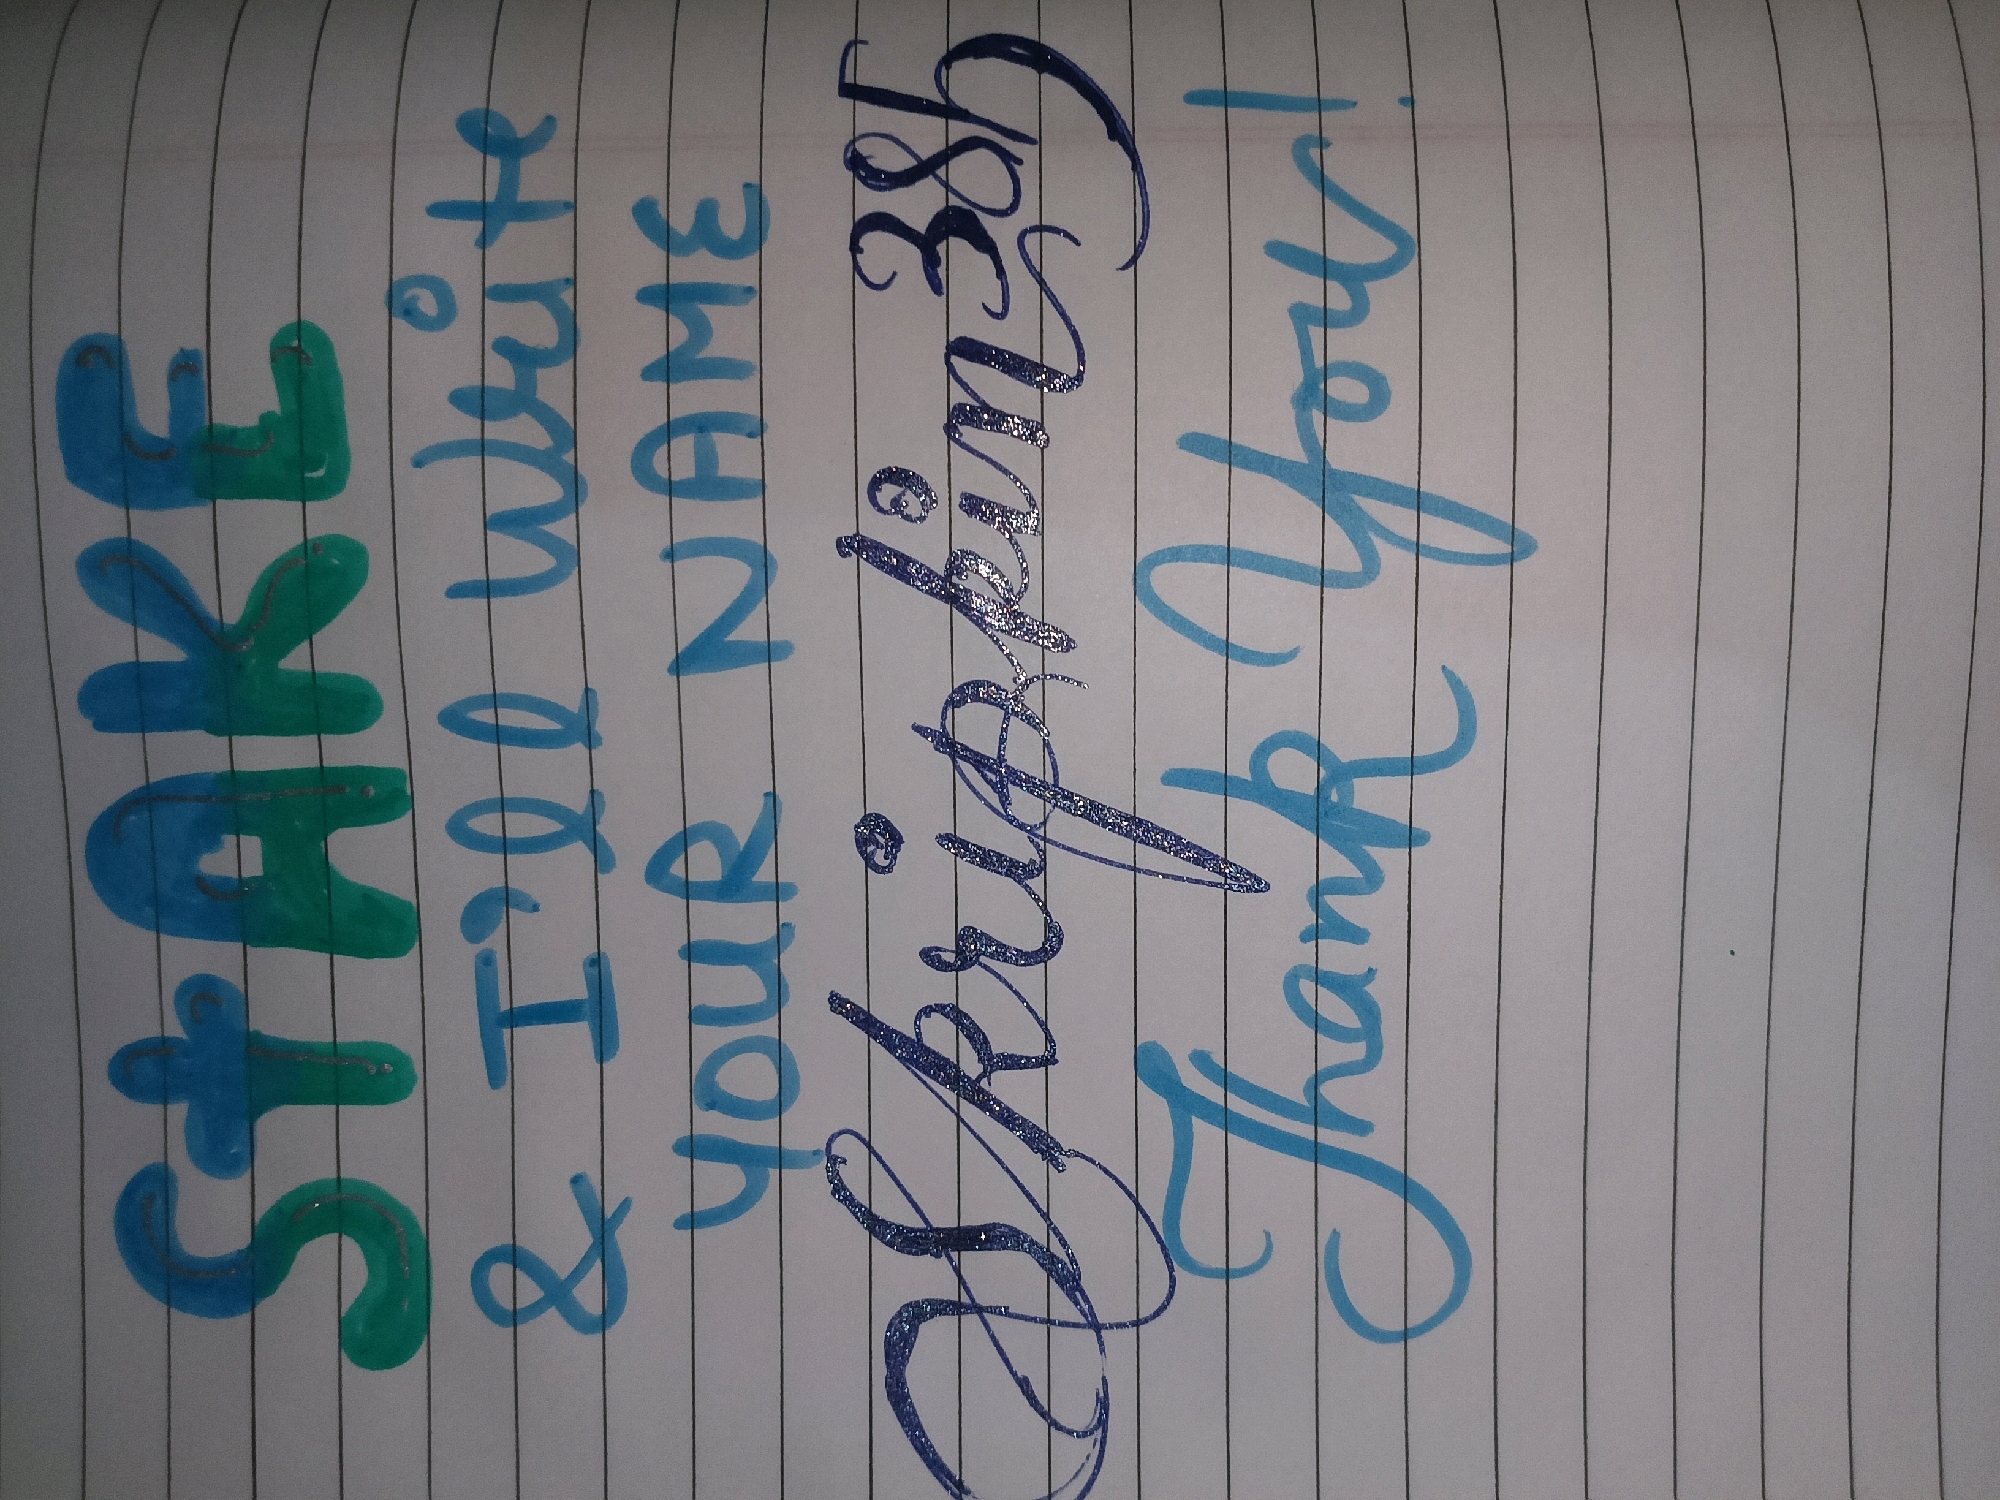 STAKE
& I'll write
YOUR NAME
Skripkin 385
Thank You!